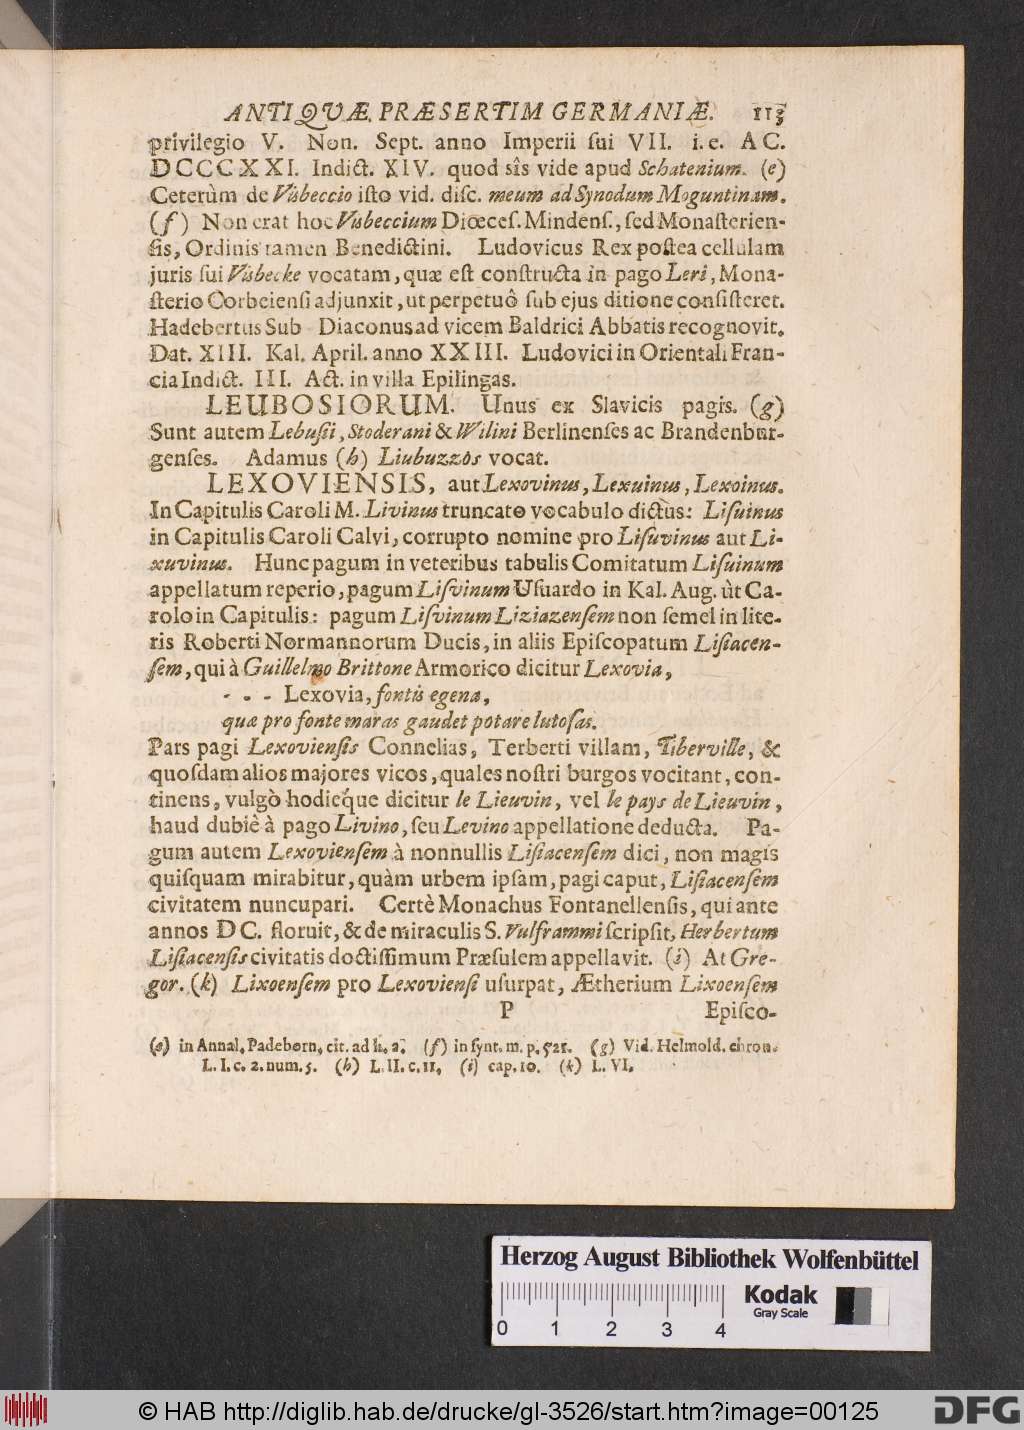 ANTIQVÆ, PRÆSERTIM GERMANIÆ. 113
privilegio V. Non. Sept. anno Imperii sui VII. i. e. A C.
DCCCXXI. Indict. XIV. quod sîs vide apud Schatenium. (e)
Ceterùm de Visbeccio isto vid. disc. meum ad Synodum Moguntinam.
(f) Non erat hoc Visbeccium Diœces. Mindens., sed Monasterien-
sis, Ordinis tamen Benedictini. Ludovicus Rex postea cellulam
juris sui Visbecke vocatam, quæ est constructa in pago Leri, Mona-
sterio Corbeiensi adjunxit, ut perpetuô sub ejus ditione consisteret.
Hadebertus Sub Diaconus ad vicem Baldrici Abbatis recognovit.
Dat. XIII. Kal. April. anno XXIII. Ludovici in Orientali Fran-
cia Indict. III. Act. in villa Epilingas.
LEUBOSIORUM. Unus ex Slavicis pagis. (g)
Sunt autem Lebusii, Stoderani & Wilini Berlinenses ac Brandenbur-
genses. Adamus (h) Liubuzzos vocat.
LEXOVIENSIS, aut Lexovinus, Lexuinus, Lexoinus.
In Capitulis Caroli M. Livinus truncato vocabulo dictus: Lisuinus
in Capitulis Caroli Calvi, corrupto nomine pro Lisuvinus aut Li-
xuvinus. Hunc pagum in veteribus tabulis Comitatum Lisuinum
appellatum reperio, pagum Lisvinum Usuardo in Kal. Aug. ùt Ca-
rolo in Capitulis: pagum Lisvinum Liziazensem non semel in lite-
ris Roberti Normannorum Ducis, in aliis Episcopatum Lisiacen-
sem, qui à Guillelmo Brittone Armorico dicitur Lexovia,
- - - Lexovia, fontis egena,
quæ pro fonte maras gaudet potare lutosas.
Pars pagi Lexoviensis Connelias, Terberti villam, Tiberville, &
quosdam alios majores vicos, quales nostri burgos vocitant, con-
tinens, vulgò hodieq́ue dicitur le Lieuvin, vel le pays de Lieuvin,
haud dubiè à pago Livino, seu Levino appellatione deducta. Pa-
gum autem Lexoviensem à nonnullis Lisiacensem dici, non magis
quisquam mirabitur, quàm urbem ipsam, pagi caput, Lisiacensem
civitatem nuncupari. Certè Monachus Fontanellensis, qui ante
annos DC. floruit, & de miraculis S. Vulframmi scripsit, Herbertum
Lisiacensis civitatis doctissimum Præsulem appellavit. (i) At Gre-
gor. (k) Lixoensem pro Lexoviensi usurpat, Ætherium Lixoensem
P Episco-
(e) in Annal. Paderborn. cit. ad h. a. (f) in synt. m. p. 521. (g) Vid. Helmold. chron.
L. I. c. 2. num. 5. (h) L. II. c. 11. (i) cap. 10. (k) L. VI.
Herzog August Bibliothek Wolfenbüttel
Kodak
Gray Scale
0 1 2 3 4
© HAB http://diglib.hab.de/drucke/gl-3526/start.htm?image=00125
DFG